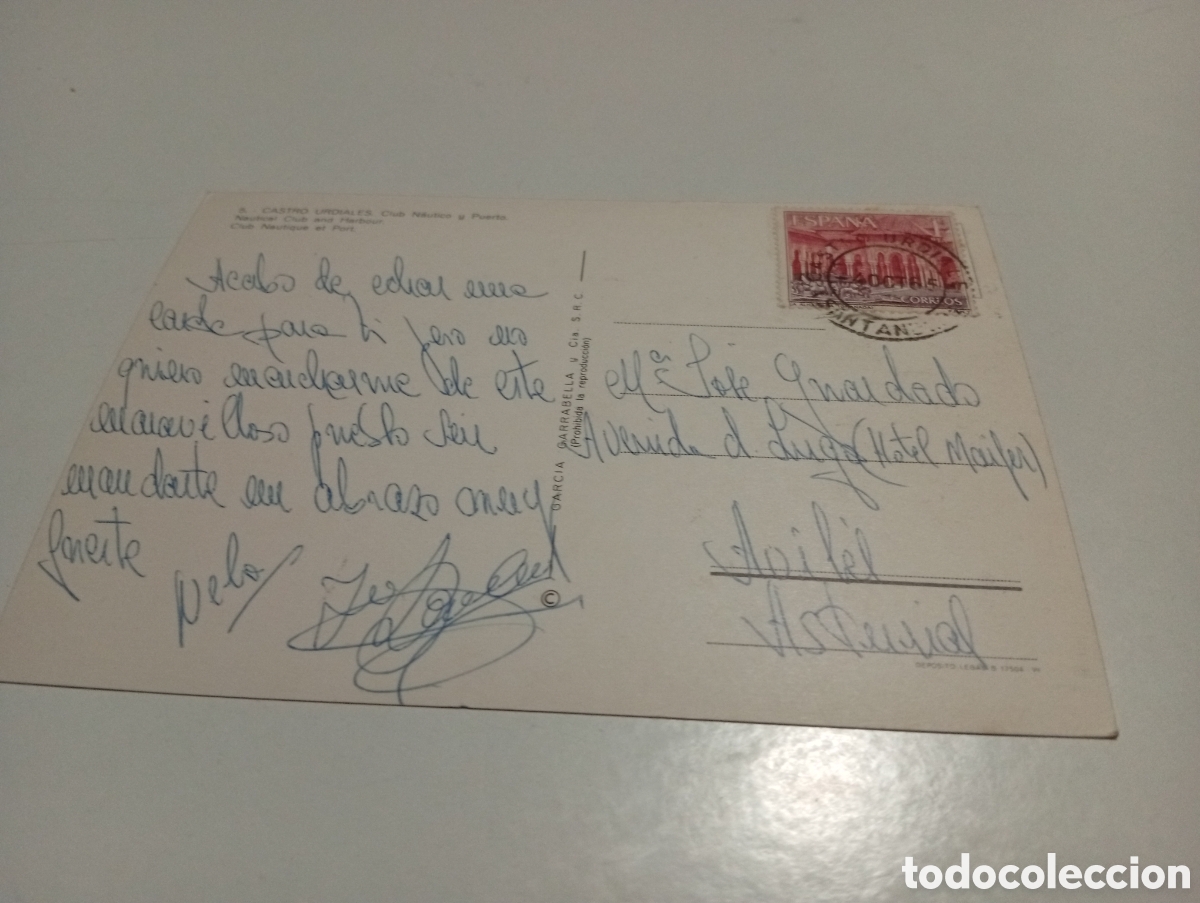 5. - CASTRO URDIALES. Club Náutico y Puerto.
Nautical Club and Harbour.
Club Nautique et Port.
Acabo de echar una
carta para ti pero no
quiero marcharme de este
maravilloso puesto sin
mandarte un abrazo muy
fuerte
GARCIA GARRABELLA y Cia. S.R.C.
(Prohibida la reproducción)
©
ESPAÑA 1
CORREOS
OCT 65
SANTAN
Mª José Guardado
Avenida d. Lugo (Hotel Maifer)
Avilés
Asturias
DEPOSITO LEGAL B. 17504 - VI
todocoleccion